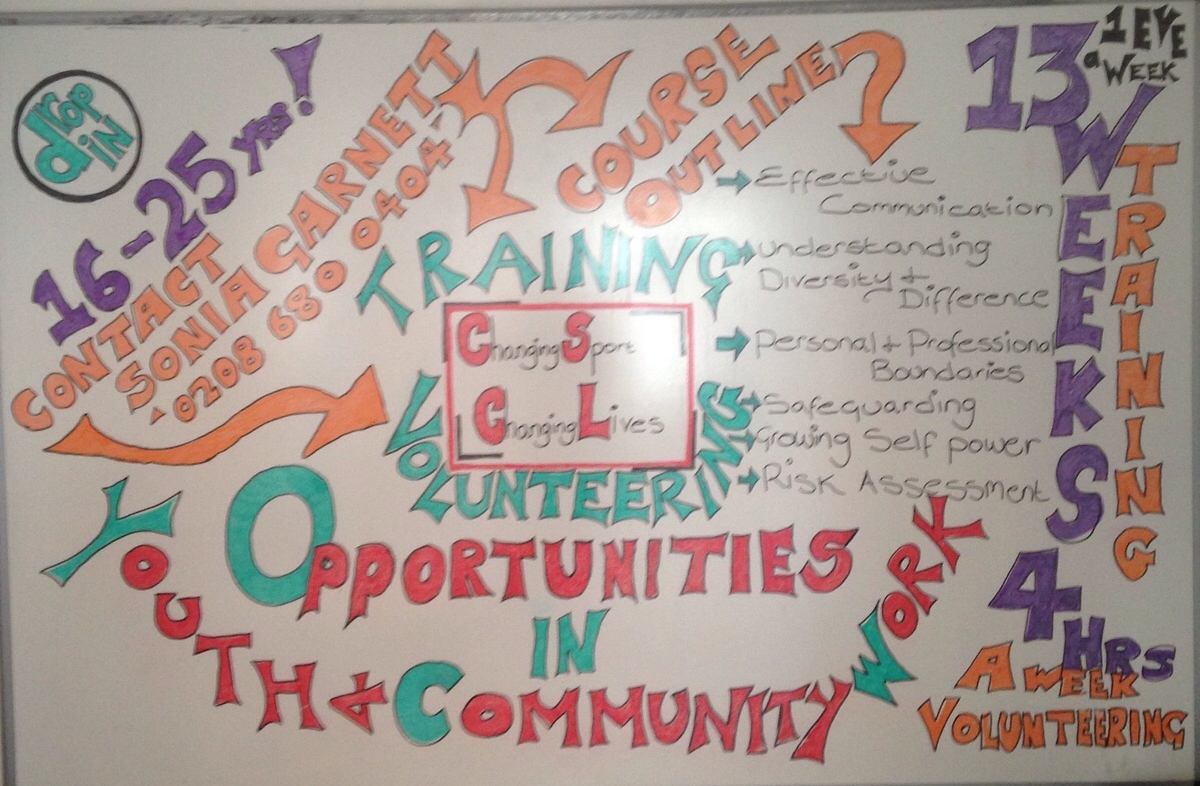 drop
in
16-25 yrs!
CONTACT
SONIA GARNETT
0208 680 0404
COURSE
OUTLINE
TRAINING
Changing Sport
Changing Lives
VOLUNTEERING
→ Effective
Communication
→ understanding
Diversity +
Difference
→ Personal + Professional
Boundaries
→ Safeguarding
→ Growing Self power
→ Risk Assessment
OPPORTUNITIES
IN
YOUTH & COMMUNITY WORK
13 WEEKS
1 EVE
a WEEK
TRAINING
4 HRS
A WEEK
VOLUNTEERING